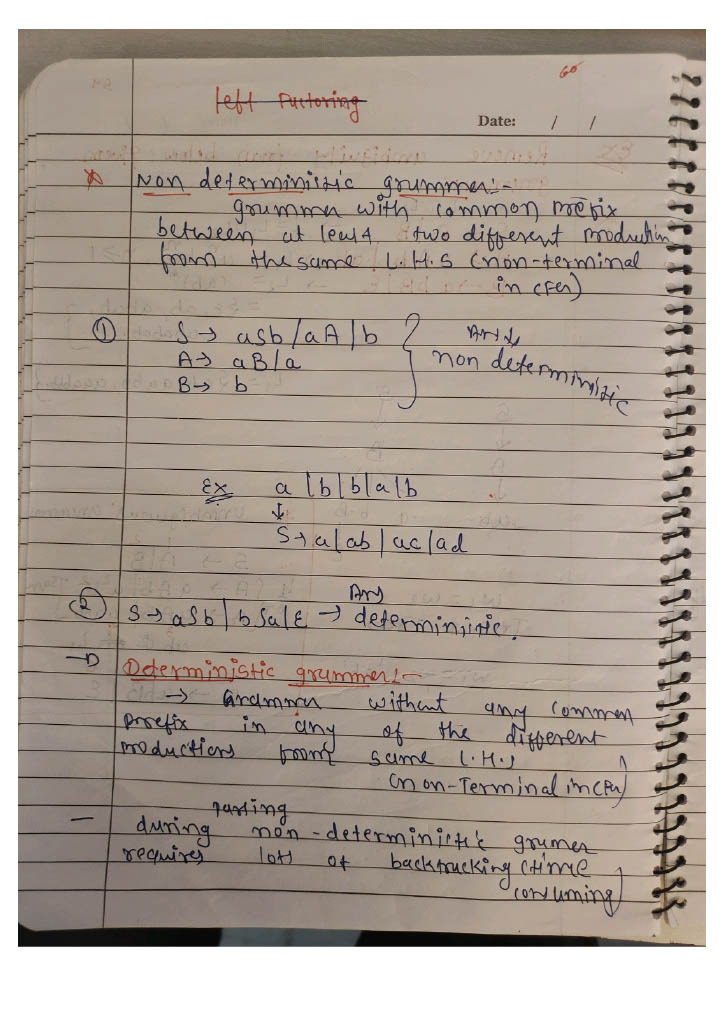 60
left Factoring
Date: / /
Non deterministic grammer:-
grammer with common prefix
between at least two different production
from the same L.H.S (non-terminal
in CFG)
① S → aSb / aA / b
A → aB / a
B → b
Ans
non deterministic
Ex a | b | b | a | b
↓
S → a | ab | ac | ad
Ans
② S → aSb | bSa | ε → deterministic.
Deterministic grammer:-
→ Grammer without any common
prefix in any of the different
productions from same L.H.S
(non-Terminal in CFG)
parsing
— during non-deterministic grumer
requires lots of backtracking (time
consuming)